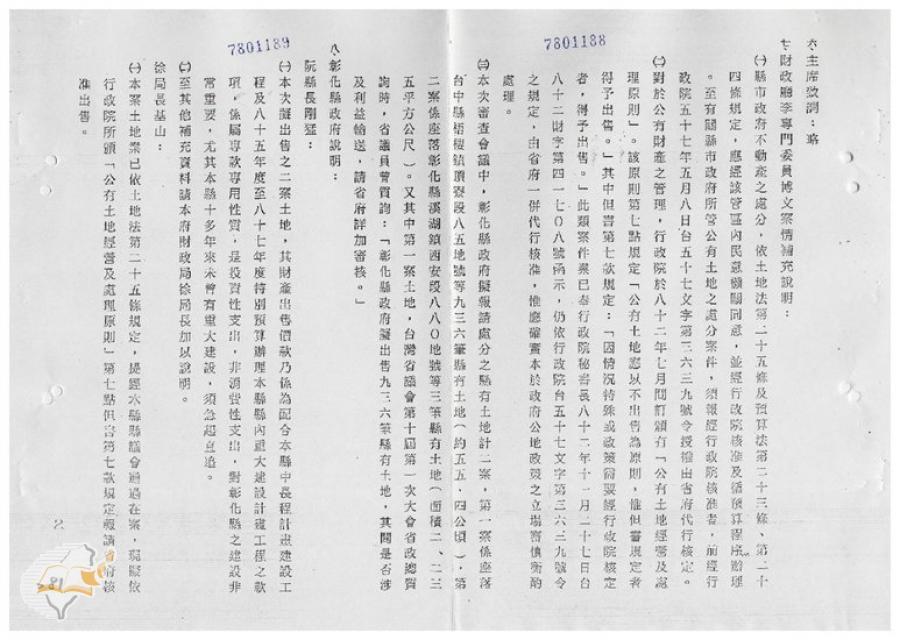 7801188
六、主席致詞：略
七、財政廳李專門委員博文案情補充說明：
㈠縣市政府不動產之處分，依土地法第二十五條及預算法第二十三條、第二十
四條規定，應經該管區內民意機關同意，並經行政院核准及循預算程序辦理
。至有關縣市政府所管公有土地之處分案件，須報經行政院核准者，前經行
政院五十七年五月八日台五十七文字第三六三九號令授權由省府代行核定。
㈡對於公有財產之管理，行政院於八十二年七月間訂頒有「公有土地經營及處
理原則」。該原則第七點規定「公有土地應以不出售為原則，惟但書規定者
得予出售。」其中但書第七款規定：「因情況特殊或政策需要經行政院核定
者，得予出售。」此類案件業已奉行政院秘書長八十二年十一月二十七日台
八十二財字第四一七〇八號函示，仍依行政院台五十七文字第三六三九號令
之規定，由省府一併代行核准，惟應確實本於政府公地政策之立場審慎衡酌
處理。
㈢本次審查會議中，彰化縣政府擬報請處分之縣有土地計二案，第一案係座落
台中縣梧棲鎮頂寮段八五地號等九三六筆縣有土地（約五五．四公頃），第
二案係座落彰化縣溪湖鎮西安段八八〇地號等三筆縣有土地（面積二、二三
五平方公尺）。又其中第一案土地，台灣省議會第十屆第一次大會省政總質
詢時，省議員曾質詢：「彰化縣政府擬出售九三六筆縣有土地，其間是否涉
及利益輸送，請省府詳加審核。」
7801189
八、彰化縣政府說明：
阮縣長剛猛：
㈠本次擬出售之二案土地，其財產出售價款乃係為配合本縣中長程計畫建設工
程及八十五年度至八十七年度特別預算辦理本縣縣內重大建設計畫工程之款
項，係屬專款專用性質，是投資性支出，非消費性支出，對彰化縣之建設非
常重要，尤其本縣十多年來未曾有重大建設，須急起直追。
㈡至其他補充資料請本府財政局徐局長加以說明。
徐局長基山：
㈠本案土地業已依土地法第二十五條規定，提經本縣縣議會通過在案，現擬依
行政院所頒「公有土地經營及處理原則」第七點但書第七款規定報請省府核
准出售。
2
281